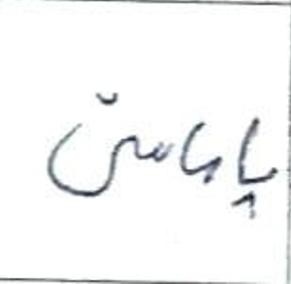 پاداش